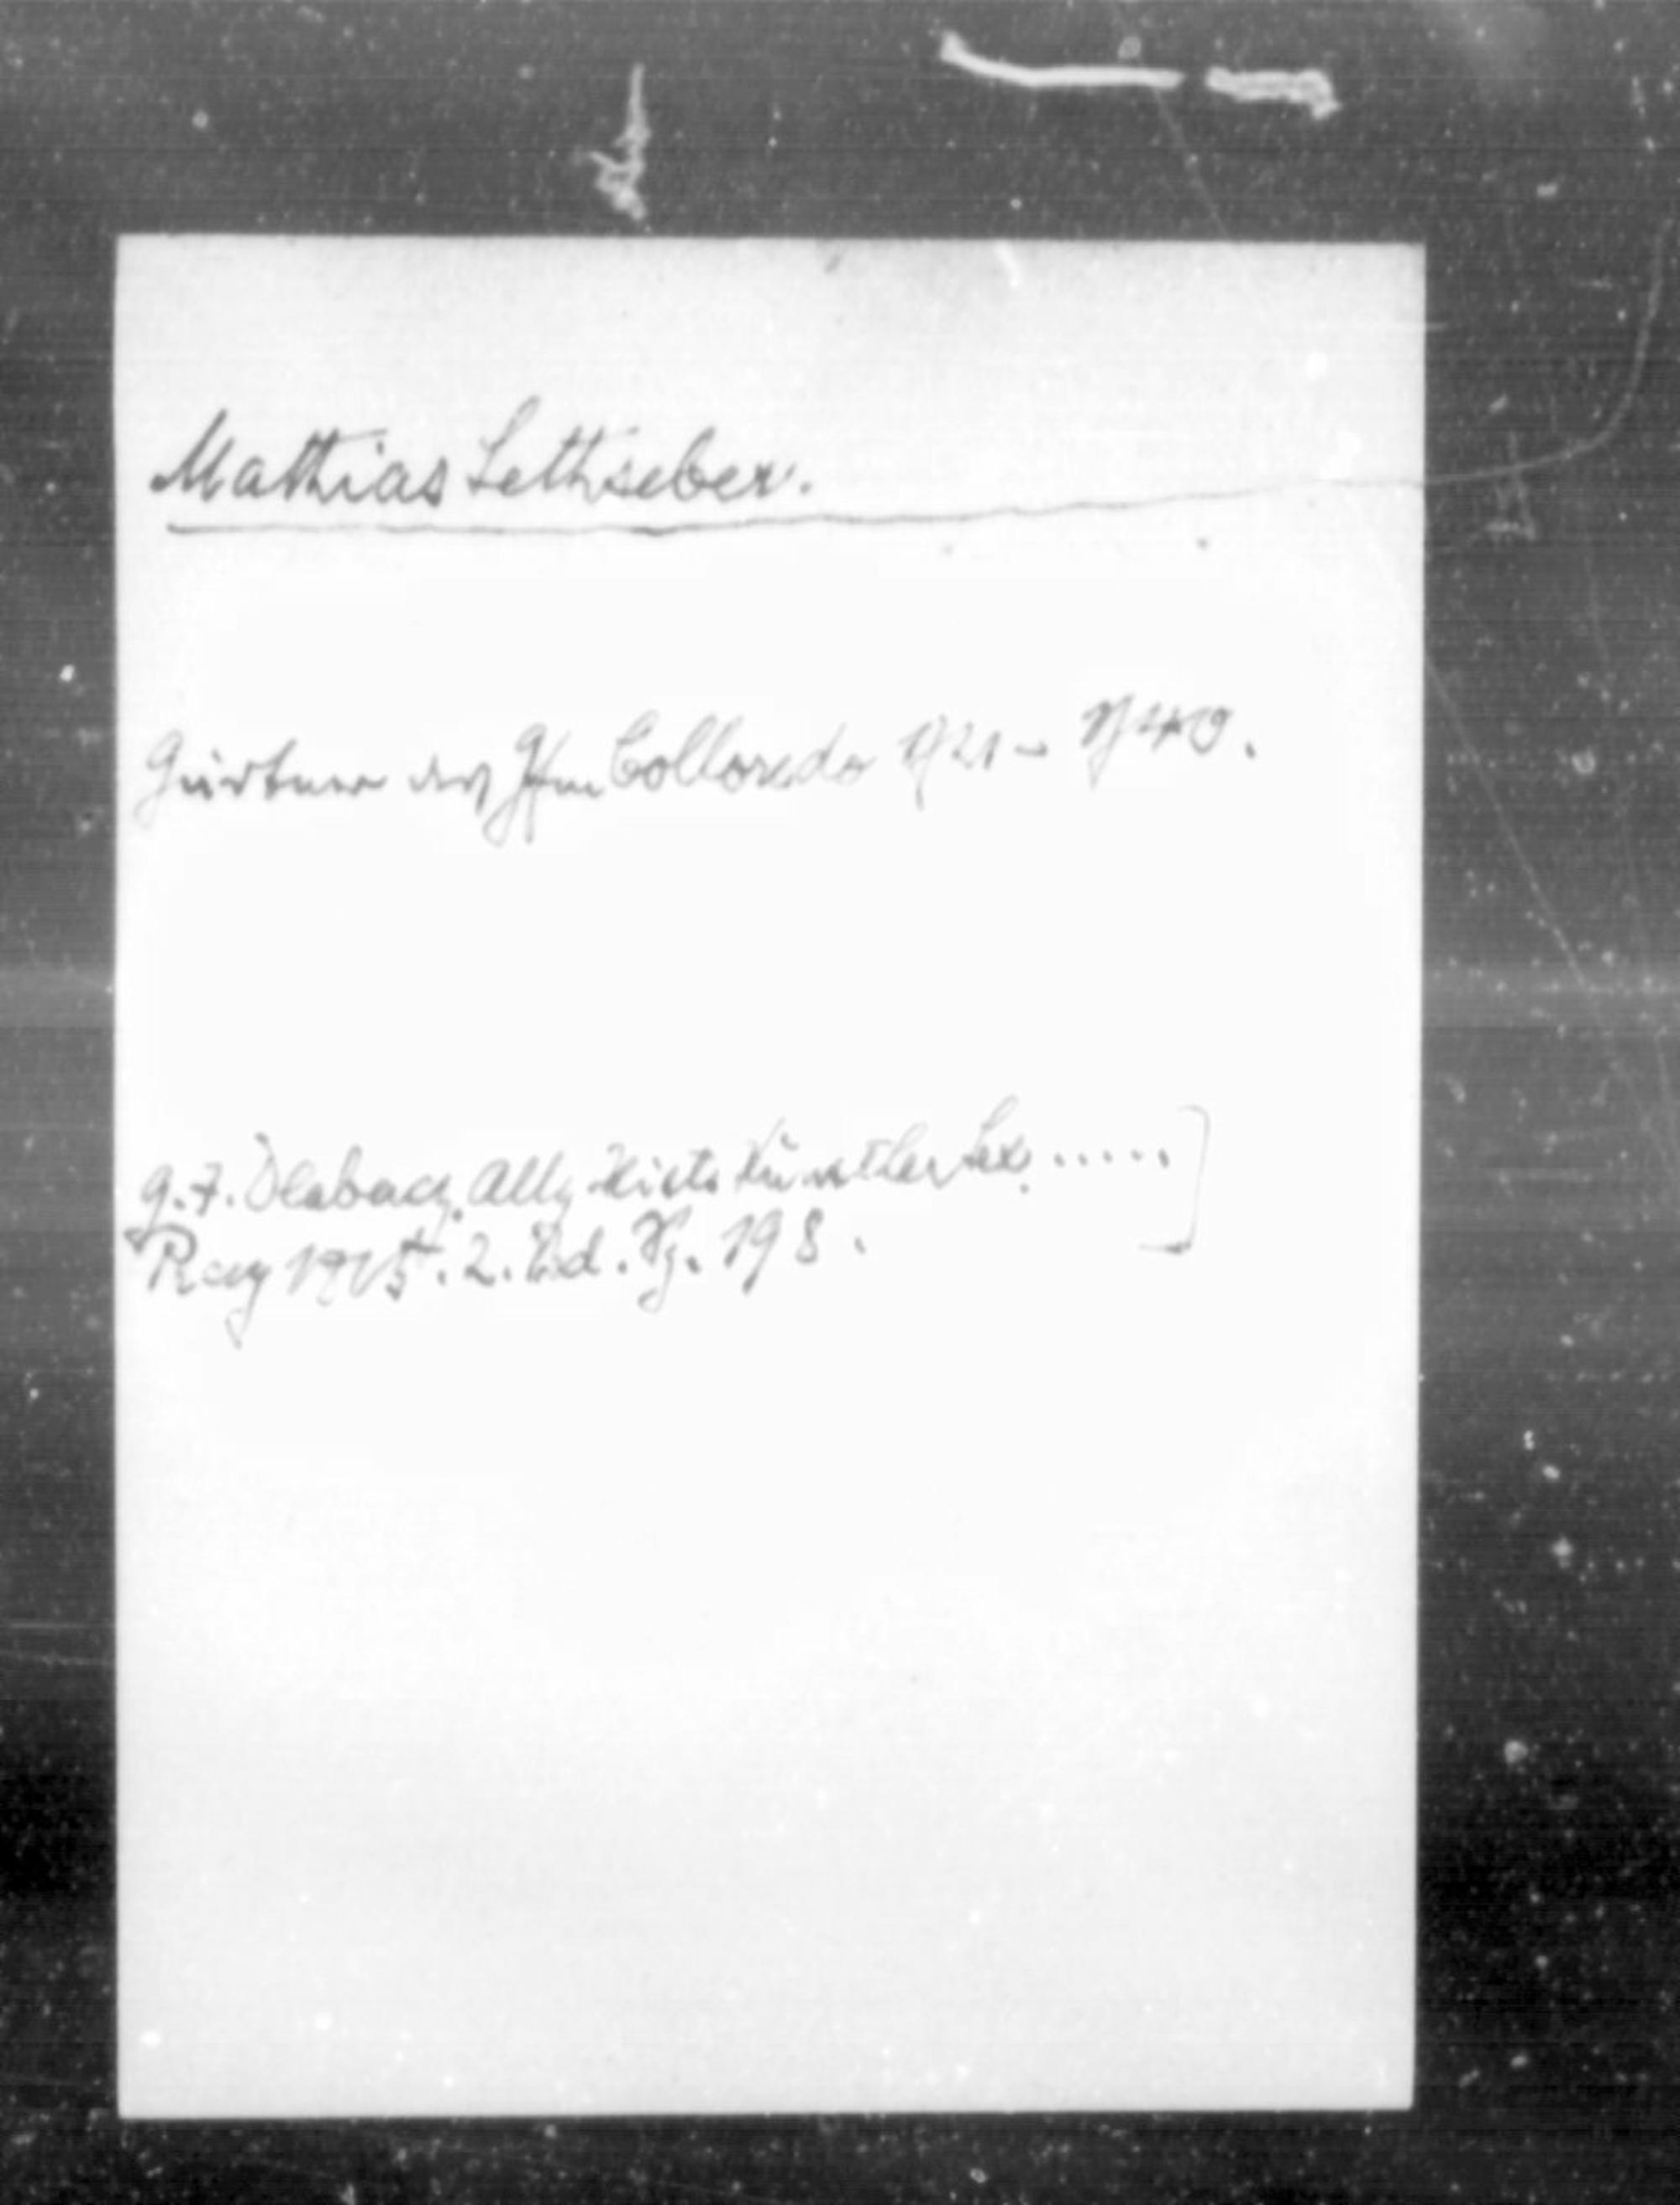 Mathias Lethseber.
Gärtner des Gfen Colloredo 1721 - 1740.
G. J. Dlabacz. Allg. Hist. Künstler Lex. .....]
Prag 1815. 2. Bd. Pg. 198.